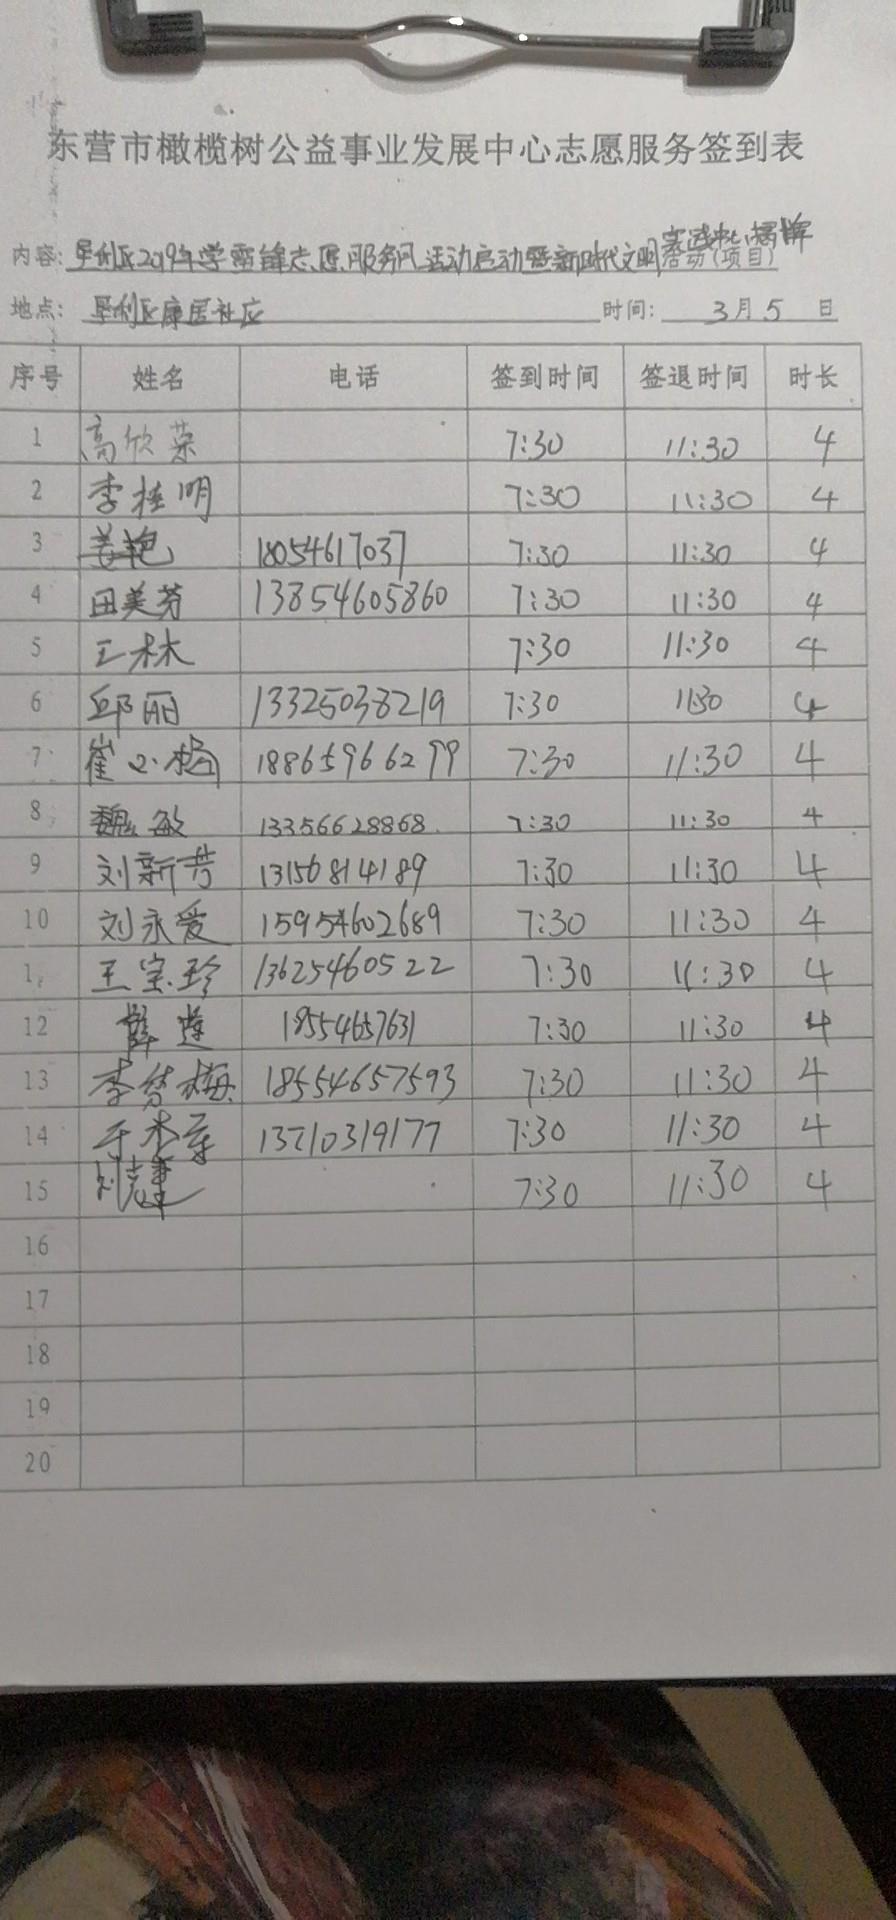 东营市橄榄树公益事业发展中心志愿服务签到表
实践中心揭牌
内容: 垦利区2019年学雷锋志愿服务月活动启动暨新时代文明活动(项目)
地点: 垦利区康居社应 时间: 3月5日
序号 姓名 电话 签到时间 签退时间 时长
1 高欣荣 7:30 11:30 4
2 李桂明 7:30 11:30 4
3 姜艳 18054617037 7:30 11:30 4
4 田美芬 13854605860 7:30 11:30 4
5 王林 7:30 11:30 4
6 邱丽 13325038219 7:30 11:30 4
7 崔小梅 18865966299 7:30 11:30 4
8 魏敏 13356628868 7:30 11:30 4
9 刘新芳 13156814189 7:30 11:30 4
10 刘永爱 15954602689 7:30 11:30 4
1 王宝珍 13625460522 7:30 11:30 4
12 薛莲 18554657631 7:30 11:30 4
13 李梅 18554657593 7:30 11:30 4
14 于 7:30 11:30 4
15 刘 7:30 11:30 4
16
17
18
19
20